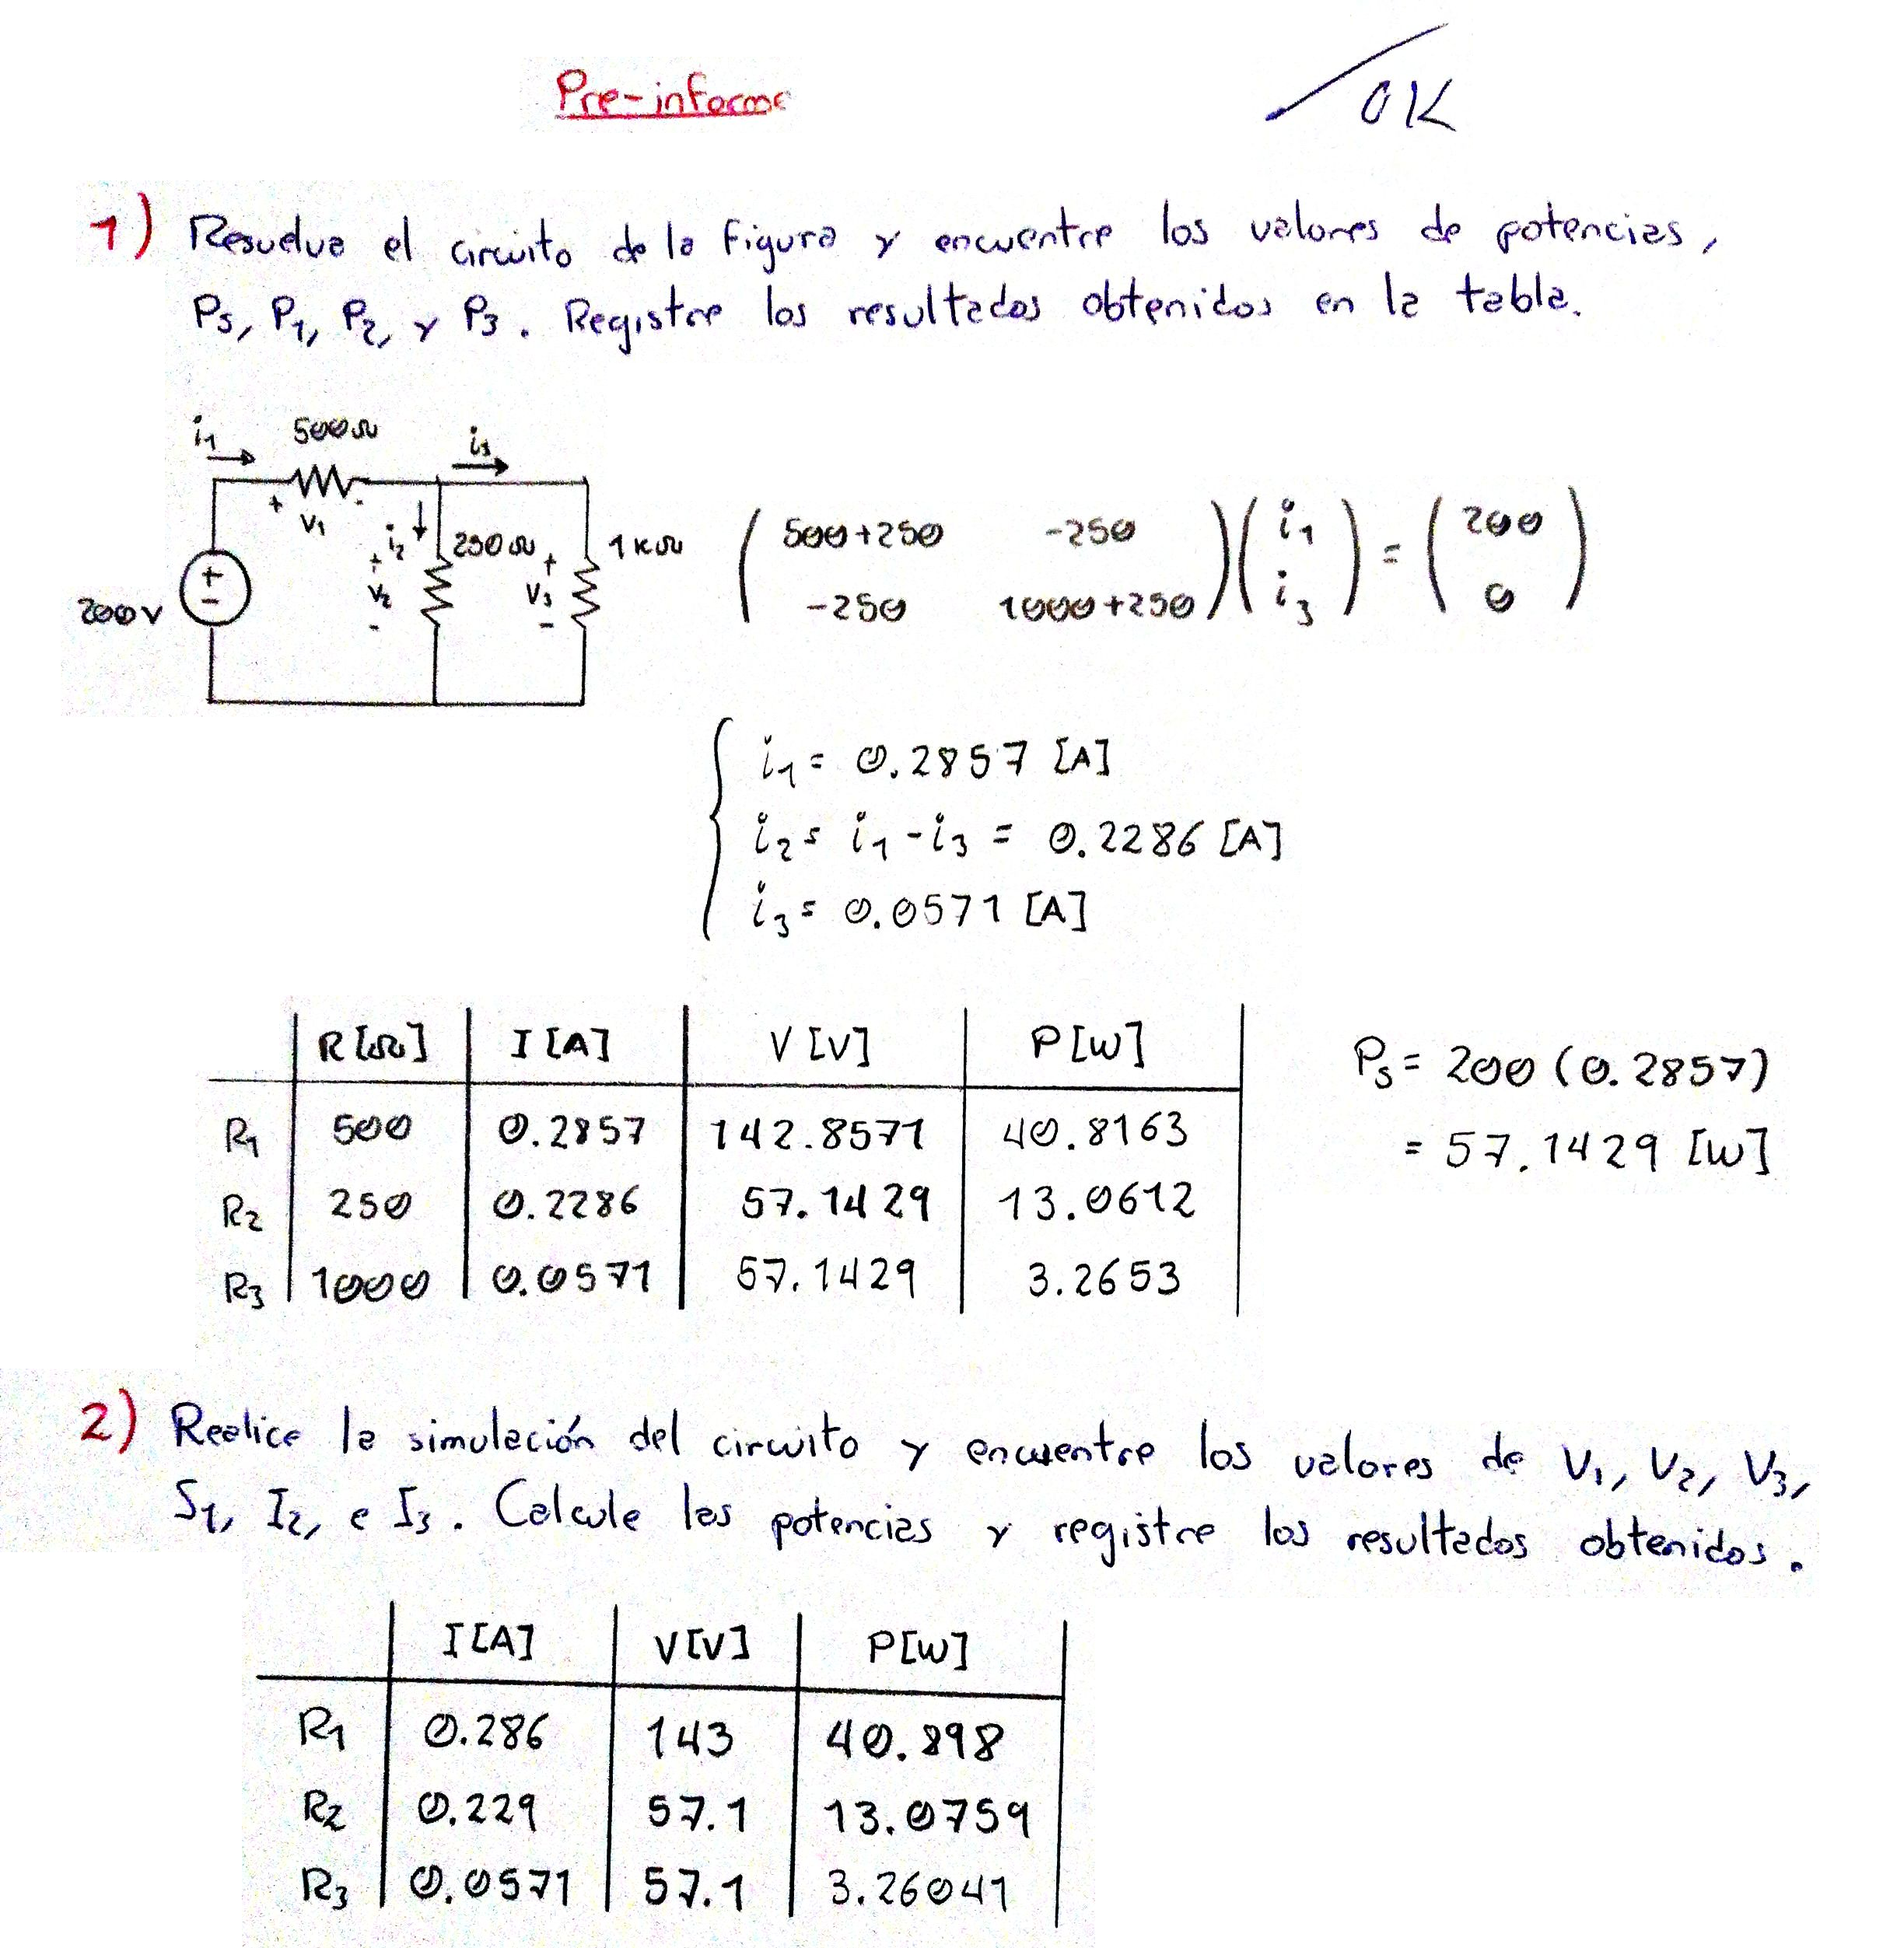 Pre-informe
OK
1) Resuelva el circuito de la figura y encuentre los valores de potencias,
Ps, P1, P2, y P3. Registre los resultados obtenidos en la tabla.
i1 500Ω i3
+ V1 - i2 250Ω 1kΩ
200V + - + V2 - + V3 -
( 500+250 -250 ) ( i1 ) = ( 200 )
( -250 1000+250 ) ( i3 ) ( 0 )
i1 = 0.2857 [A]
i2 = i1 - i3 = 0.2286 [A]
i3 = 0.0571 [A]
R[Ω] I[A] V[V] P[W]
R1 500 0.2857 142.8571 40.8163
R2 250 0.2286 57.1429 13.0612
R3 1000 0.0571 57.1429 3.2653
Ps = 200 (0.2857)
= 57.1429 [W]
2) Realice la simulación del circuito y encuentre los valores de V1, V2, V3,
S1, I2, e I3. Calcule las potencias y registre los resultados obtenidos.
I[A] V[V] P[W]
R1 0.286 143 40.898
R2 0.229 57.1 13.0759
R3 0.0571 57.1 3.26041